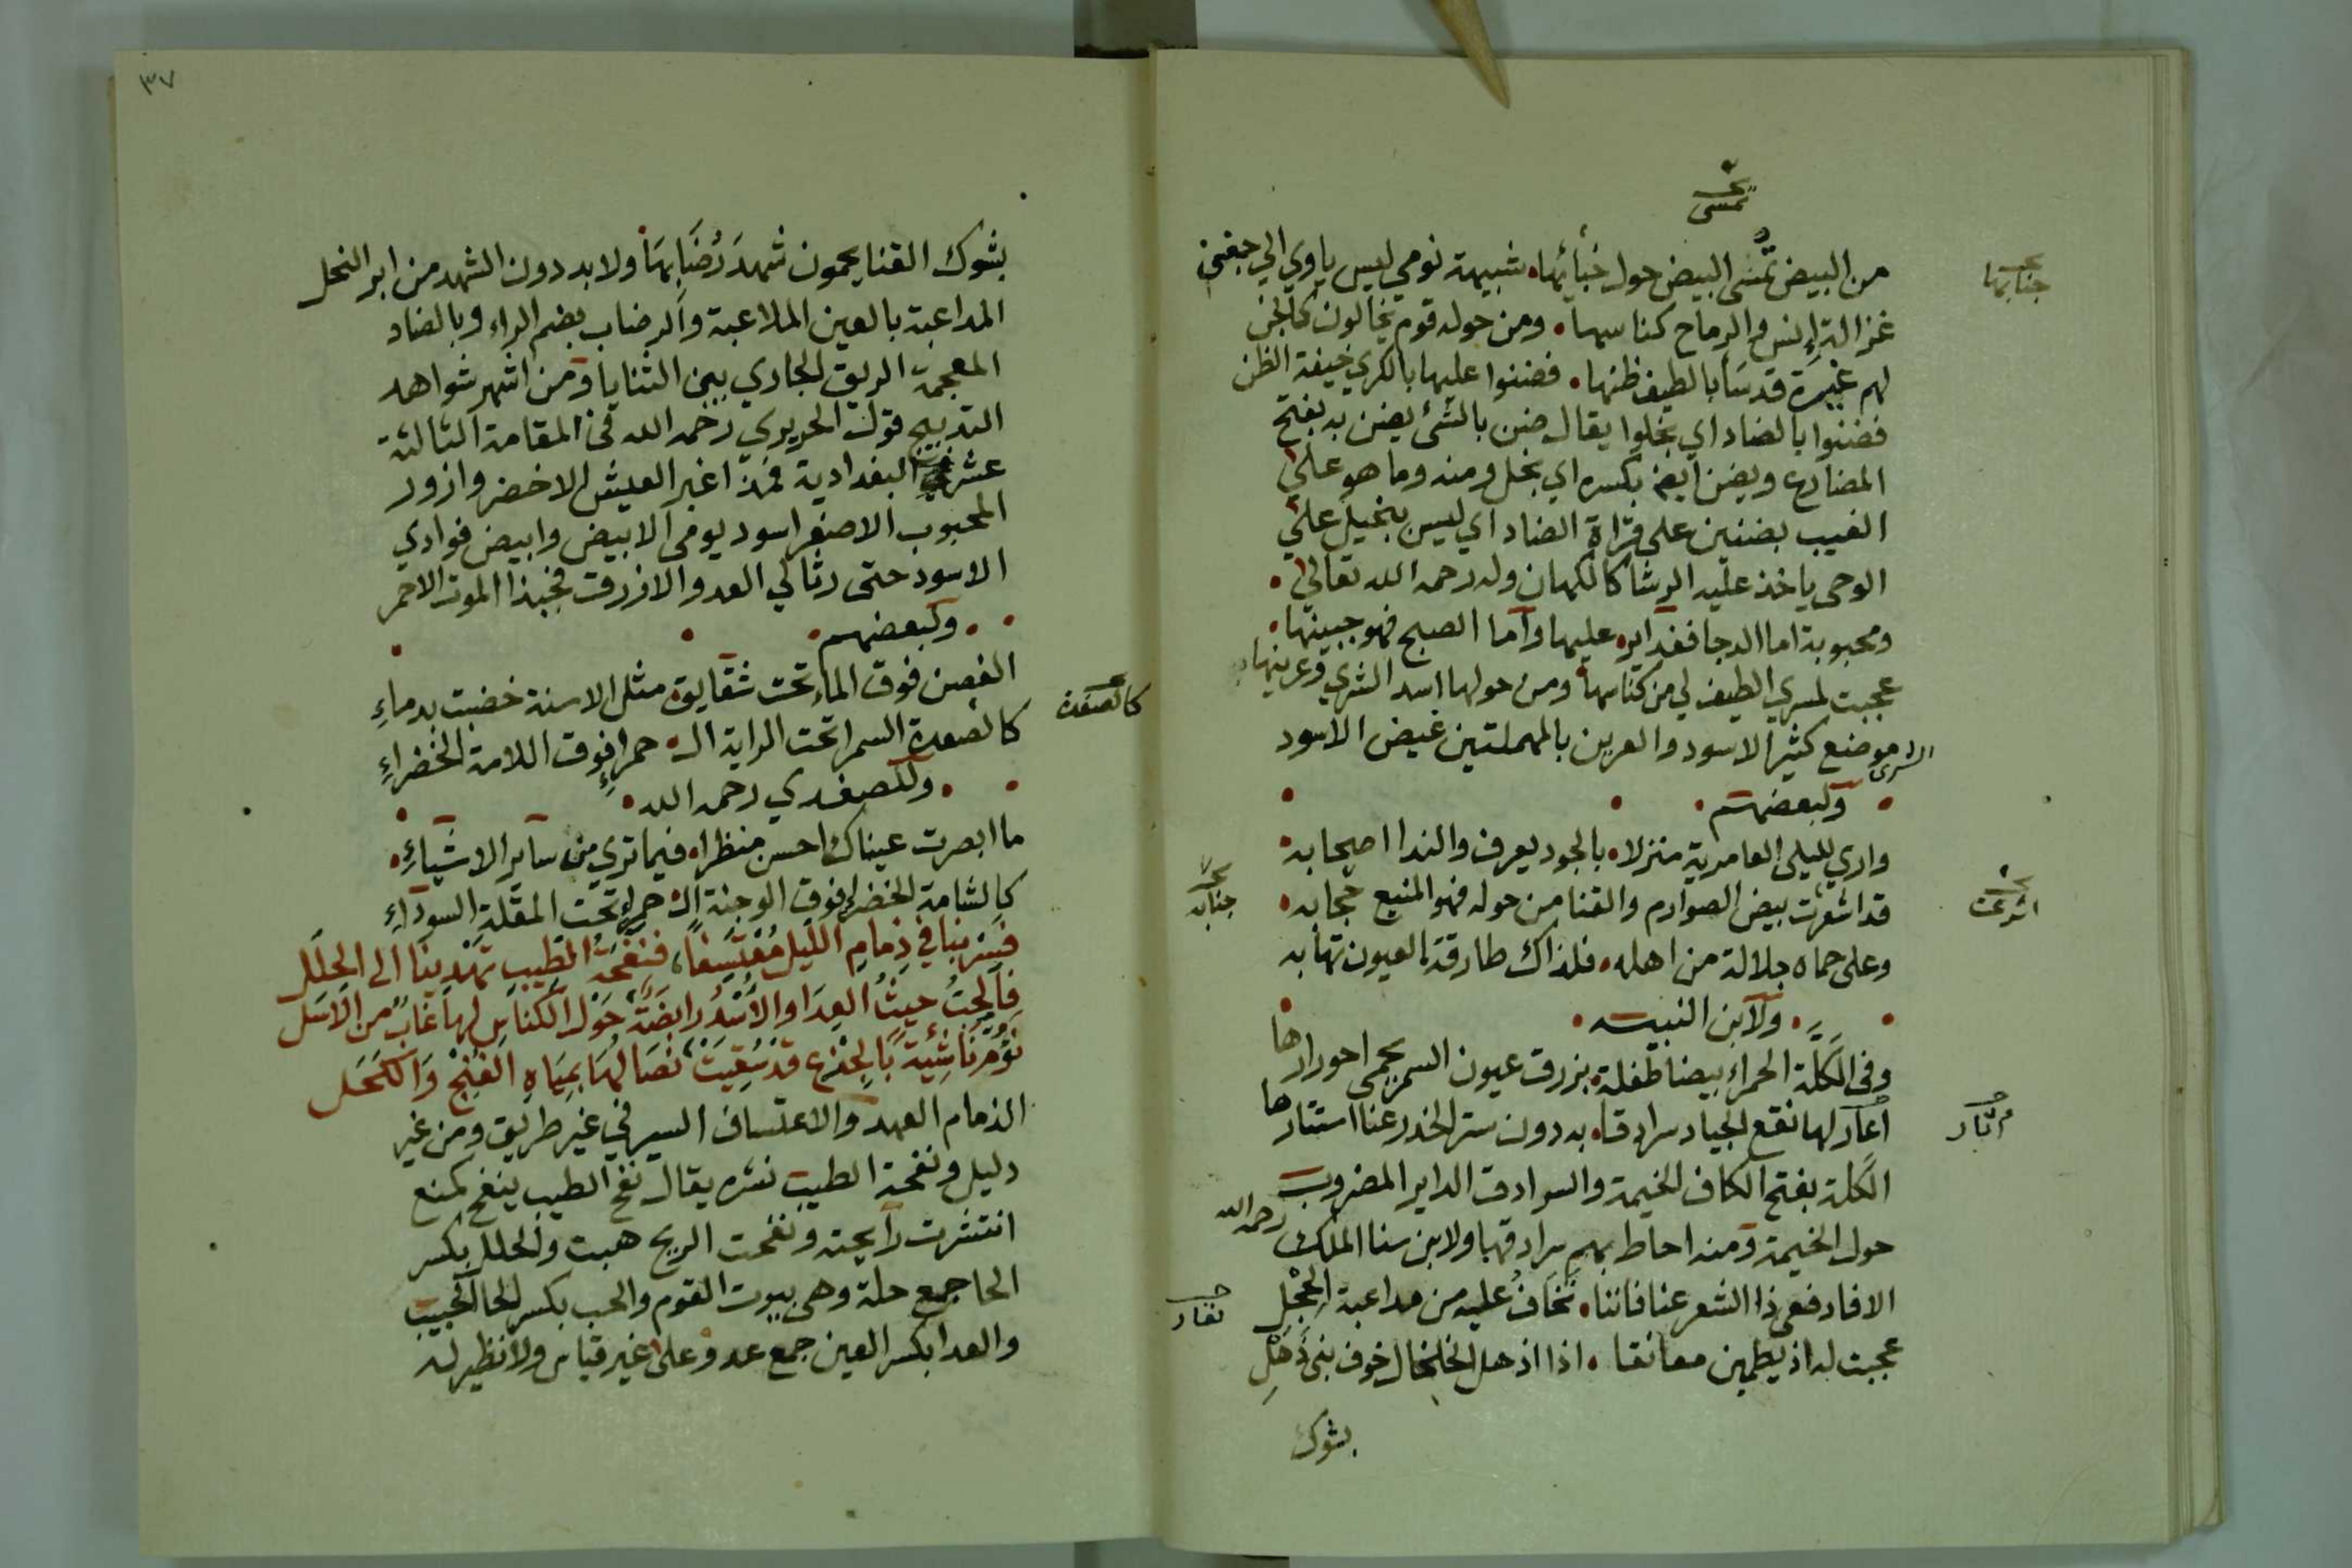 تمسى
من البيض تمشى البيض حول خبأئها. شبيهة نومي ليس ياوي الي جفني
جنابها
غزالة انس والرماح كناسها. ومن حوله قوم يخالون كالجن
لهم غيرة قد سَأ بالطيف ظنها. فضننوا عليها بالكري خيفة الظن
فضننوا بالضاد اي بخلوا يقال ضنن بالشئ يضنن به بفتح
المضارع ويضن ايضا بكسره اي بخل ومنه وما هو على
الغيب بضنين على قراة الضاد اي ليس ببخيل على
الوحى ياخذ عليه الرشا كالكهان وله رحمه الله تعالى.
ومحبوبة اما الدجا فغدايره عليها واما الصبح فهو جبينها.
عجبت لمسري الطيف لي من كناسها ومن حولها اسد الشري وعرينها
الشرى موضع كثير الاسود والعرين بالمهملتين غيض الاسود
. ولبعضهم .
واري لليلى العامرية منزلا. بالجود يعرف والندا اصحابه
قد اشعرت بيض الصوارم والقنا من حوله فهو المنيع حجابه.
اشرعت
جنابه
وعلى حماه جلالة من اهله. فلذاك طارقة العيون تهابه
. ولابن النبيه .
وفى الكَلّة الحمراء بيضا طفلة. بزرق عيون السمر يحمى احورارها
أعار لها نقع الجياد سرادقا. به دون ستر الخدر عنا استتارها
اثار
الكَلة بفتح الكاف الخيمة والسرادق الداير المضروب
حول الخيمة ومنه احاط بهم سرادقها ولابن سنا الملك رحمه الله
الا فارفعى ذا الشعر عنا فاننا. نخافُ عليه من مداعبة الحِجْلِ
نغار
عجبت له اذ يطمين معانقا. اذا اذهل الخلخال خوف بنى ذُهْلِ
بشوك
٣٧
بشوك القنا يحمون شهدَ رُضَابِهَا ولا بد دون الشهد من ابر النحل
المداعبة بالعين الملاعبة والرضاب بضم الراء وبالضاد
المعجمة الريق الجاري بين الثنايا ومن اشهر شواهد
التدبيج قول الحريري رحمه الله في المقامة الثالثة
عشر البغدادية فمذ اغبر العيش الاخضر وازور
المحبوب الاصفر اسود يومى الابيض وابيض فوادي
الاسود حتى رثا لي العدو الازرق فحبذا الموت الاحمر
. ولبعضهم .
الغصن فوق الماء تحت شقايق مثل الاسنة خضبت بدماءِ
كالصعدة السمرا تحت الراية الـ. حمراءِ فوق اللامة الخضراءِ
كالصعدة
. وللصفدي رحمه الله .
ما ابصرت عيناك احسن منظرا. فيما تري من ساير الاشياءِ.
كالشامة الخضراءِ فوق الوجنة الـ. حمراءِ تحت المقلة السودآءِ
فَسِرْ بنا في ذِمامِ الليل مُعْتَسِفاً، فنَفْحَةُ الطيبِ تهدينَا الى الحِلَلِ
فالحِبُّ حيثُ العِدَا والأُسْدُ رابضَةٌ حَوْل الكناسِ لها غابٌ من الاَسَلِ
نَؤُمُّ نَاشِئَةً بالجِزْعِ قد سُقِيَتْ نصَالُهَا بمِيَاهِ الغُنْج وَالكَحَلِ
الذمام العهد والاعتساف السير في غير طريق ومن غير
دليل ونفحة الطيب نشره يقال نفح الطيب ينفح كمنع
انتشرت رآيحته ونفحت الريح هبت والحلل بكسر
الحا جمع حلة وهى بيوت القوم والحب بكسر الحا الحبيب
والعدا بكسر العين جمع عدو على غير قياس ولا نظير له